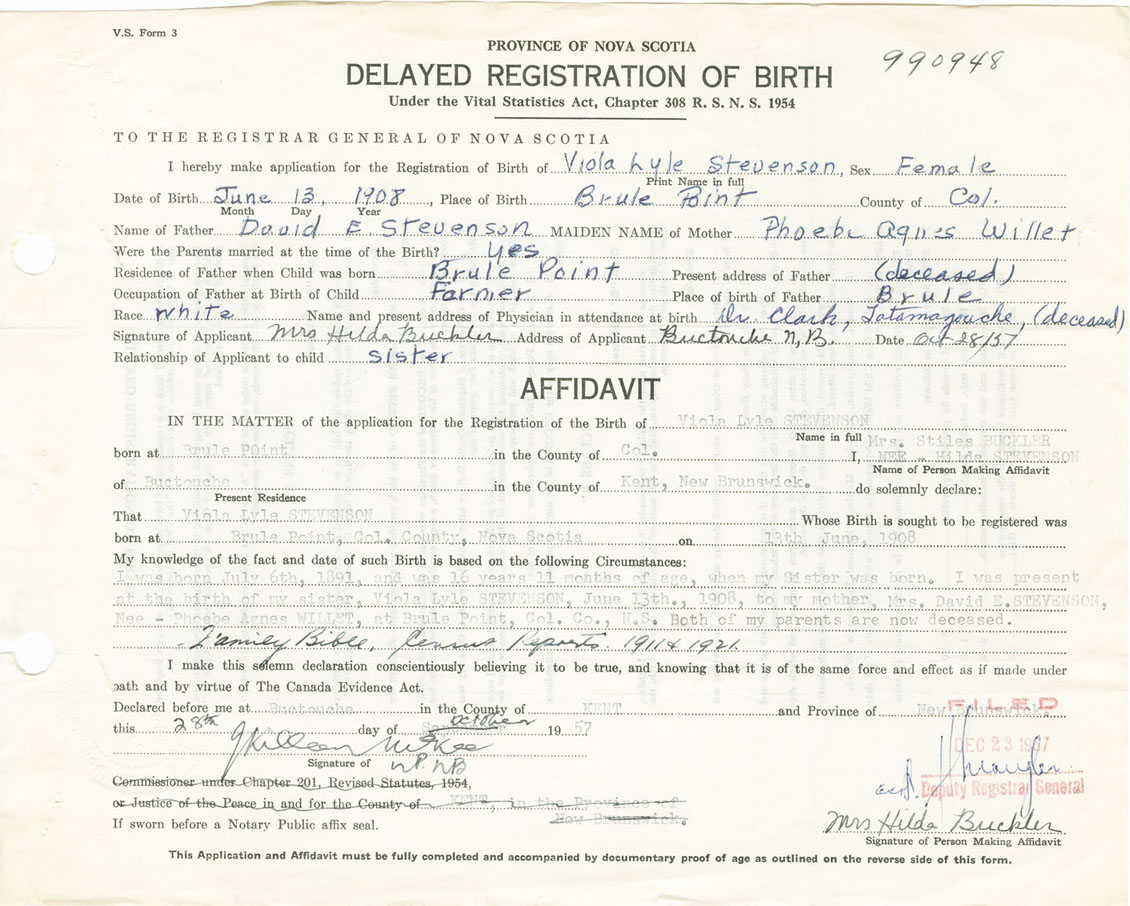 V.S. Form 3
PROVINCE OF NOVA SCOTIA
990948
DELAYED REGISTRATION OF BIRTH
Under the Vital Statistics Act, Chapter 308 R. S. N. S. 1954
TO THE REGISTRAR GENERAL OF NOVA SCOTIA
I hereby make application for the Registration of Birth of Viola Lyle Stevenson, Sex Female
Print Name in full
Date of Birth June 13, 1908, Place of Birth Brule Point County of Col.
Month Day Year
Name of Father David E. Stevenson MAIDEN NAME of Mother Phoebe Agnes Willet
Were the Parents married at the time of the Birth? yes
Residence of Father when Child was born Brule Point Present address of Father (deceased)
Occupation of Father at Birth of Child Farmer Place of birth of Father Brule
Race white Name and present address of Physician in attendance at birth Dr. Clark, Tatamagouche, (deceased)
Signature of Applicant Mrs Hilda Buckler Address of Applicant Buctouche N,B. Date Oct 28/57
Relationship of Applicant to child sister
AFFIDAVIT
IN THE MATTER of the application for the Registration of the Birth of Viola Lyle STEVENSON
Name in full Mrs. Stiles BUCKLER
born at Brule POint in the County of Col. I, NEE - Hilda STEVENSON
Name of Person Making Affidavit
of Buctouche in the County of Kent, New Brunswick. do solemnly declare:
Present Residence
That Viola Lyle STEVENSON Whose Birth is sought to be registered was
born at Brule Point, Col. County, Nova Scotia on 13th June, 1908
My knowledge of the fact and date of such Birth is based on the following Circumstances:
I was born July 6th, 1891, and was 16 years 11 months of age, when my Sister was born. I was present
at the birth of my sister, Viola Lyle STEVENSON, June 13th., 1908, to my mother, Mrs. David E.STEVENSON,
Nee - Phoebe Agnes WILLET, at Brule Point, Col. Co., N.S. Both of my parents are now deceased.
Family Bible, Census Reports. 1911 & 1921.
I make this solemn declaration conscientiously believing it to be true, and knowing that it is of the same force and effect as if made under
oath and by virtue of The Canada Evidence Act.
Declared before me at Buctouche in the County of KENT and Province of New Brunswick.
FILED
this 28th day of October 1957
DEC 23 1957
McKee
Signature of NP. NB
Commissioner under Chapter 201, Revised Statutes, 1954,
Deputy Registrar General
or Justice of the Peace in and for the County of KENT, in the Province of
New Brunswick.
If sworn before a Notary Public affix seal.
Mrs Hilda Buckler
Signature of Person Making Affidavit
This Application and Affidavit must be fully completed and accompanied by documentary proof of age as outlined on the reverse side of this form.